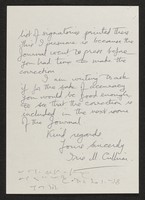 list of signatories printed thus
this I presume is because the
Journal went to press before
you had time to make the
correction
I am writing to ask
if for the sake of accuracy
you would be good enough
to see that the correction is
included in the next issue
of the Journal
Kind regards
Yours sincerely